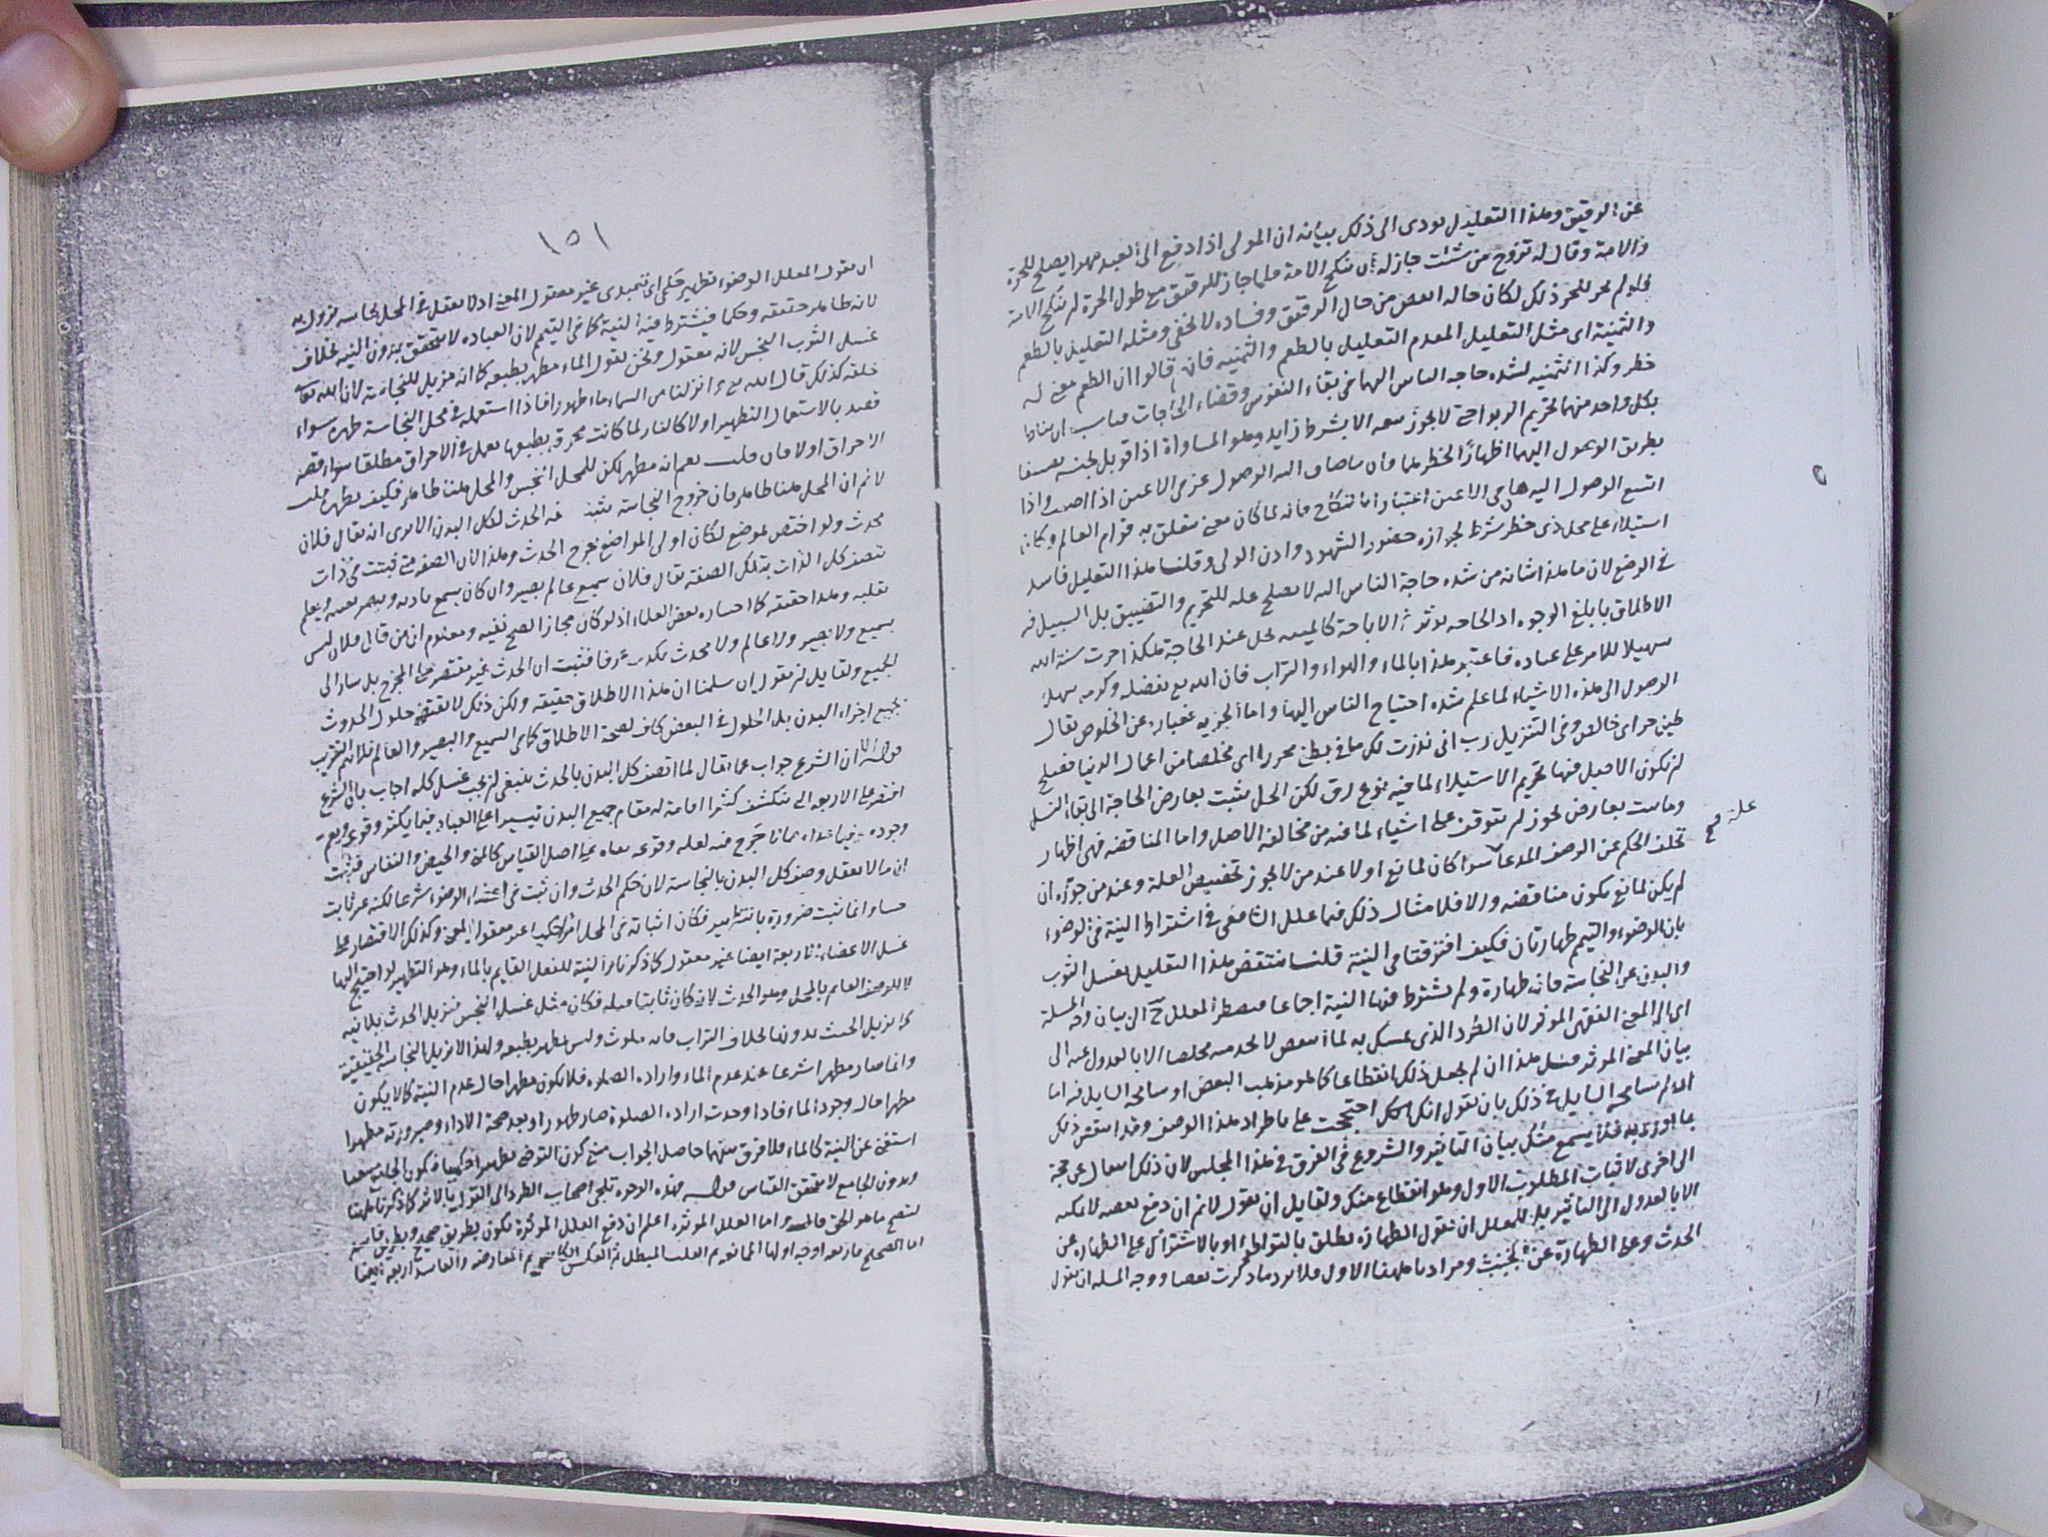 عن الرقيق وهذا التعليل يودى الى ذلك بيانه ان المولى اذا دفع الى العبد مهرا يصلح للحرة
والامة وقال له تزوج من شئت جاز له ان ينكح الامة فلما جاز للرقيق مع طول الحرة لم ينكح الامة
فلو لم يجز للحر ذلك لكان حاله انقص من حال الرقيق وفساده لا يخفى ومثله التعليل بالطعم
والثمنية اى مثل التعليل المعدم التعليل بالطعم والثمنيه قالوا ان الطعم معنى له
خطر وكذا الثمنيه لشده حاجه الناس اليها فى بقاء النفوس وقضاء الحاجات
بكل واحد منهما تحريم الربوا حتى لا يجوز بيعه الا بشرط زايد وهو المساواة اذا قوبل بجنسه
بطريق الوصول اليهما اظهارا لخطرهما فان ما ضاق اليه الوصول عز فى الاعين اذا اصيب واذا
اتسع الوصول اليه هان فى الاعين اعتبارا بالنكاح فانه لما كان معنى متعلق به قوام العالم وكان
استيلاء على محل ذى خطر شرط لجوازه حضور الشهود واذن الولى وقلنا هذا التعليل فاسد
فى الوضع لان ما هذا شانه من شده حاجة الناس اليه لا يصلح عله للتحريم والتضييق بل السبيل فيه
الاطلاق بابلغ الوجوه اذ الحاجه تؤثر فى الاباحة كالميته تحل عند الحاجة هكذا جرت سنة الله
تسهيلا للامر على عباده فاعتبر هذا بالماء والهواء والتراب فان الله تع بفضله وكرمه سهل
الوصول الى هذه الاشياء لما علم شده احتياج الناس اليها واما الحرية فعبارة عن الخلوص يقال
طين حر اى خالص وفى التنزيل رب انى نذرت لك ما فى بطنى محررا اى مخلصا من اعمال الدنيا فيصلح
لان يكون الاصل فيها تحريم الاستيلاء لما فيه نوع رق لكن الحل يثبت بعارض الحاجة الى بقاء النسل
وما يثبت بعارض يجوز ان يتوقف على اشياء لما فيه من مخالفة الاصل واما المناقضه فهى اظهار
علة صح
تخلف الحكم عن الوصف المدعا سوا كان لمانع او لا عند من لا يجوز تخصيص العلة وعند من جوزه ان
لم يكن لمانع يكون مناقضه والا فلا مثال ذلك فيما علل الشافعى فى اشتراط النية فى الوضوء
بان الوضوء والتيمم طهارتان فكيف افترقتا فى النية قلنا ينتقض هذا التعليل بغسل الثوب
والبدن عن النجاسة فانه طهارة ولم يشترط فيها النية اجماعا فيضطر المعلل ح الى بيان وجه المسلة
اى الى المعنى الفقهى المؤثر لان الطرد الذى تمسك به لما انتقض لا يجد منه مخلصا الا بالعدول عنه الى
بيان المعنى المؤثر فى مثل هذا ان لم يجعل ذلك انقطاعا كما هو مذهب البعض او سامحه السايل فيه اما
اذا لم يسامحه السايل فى ذلك بان يقول انك احتججت على باطراد هذا الوصف وقد انتقض ذلك
بما اوردته فلا يسمع منك بيان التاثير والشروع فى الفرق فى هذا المجلس لان ذلك انتقال عن حجة
الى اخرى لاثبات المطلوب الاول وهو انقطاع منك ولقايل ان يقول لانم ان دفع نقضه لا يمكنه
الا بالعدول الى التاثير بل للمعلل ان يقول الطهارة يطلق بالتواطؤ او بالاشتراك على الطهارة عن
الحدث وعلى الطهارة عن الخبث ومرادنا ههنا الاول فلا يرد ما ذكرت نقضا ووجه المسله ان يقول
١٥١
ان يقول المعلل الوضوء تطهير حكمى اى تعبدى غير معقول المعنى اذ لا يعقل فى المحل نجاسه تزول به
لانه طاهر حقيقه وحكما فيشترط فيه النية كما فى التيمم لان العباده لا يتحقق بدون النيه بخلاف
غسل الثوب النجس لانه معقول ونحن نقول الماء مطهر بطبعه كما انه مزيل للنجاسة لان الله تعا
خلقه كذلك قال الله تع وانزلنا من السماء ماء طهورا فاذا استعمله فى محل النجاسة طهره سواء
قصد بالاستعمال التطهير اولا كالنار لما كانت محرقة بطبعها تعمل فى الاحراق مطلقا سواء قصد
الاحراق اولا فان قلت نعم انه مطهر لكن للمحل النجس والمحل ههنا طاهر فكيف يطهره قلت
لانم ان المحل ههنا طاهر فان خروج النجاسة الحدث لكل البدن الا يرى انه يقال فلان
محدث ولو اختص لموضع لكان اولى المواضع مخرج الحدث وهذا لان الصفه متى ثبتت فى ذات
يتصف كل الذات بتلك الصفة يقال فلان سميع عالم بصير وان كان يسمع باذنه ويبصر بعينه ويعلم
بقلبه وهذا حقيقه كما اختاره بعض العلماء اذ لو كان مجازا لصح نفيه ومعلوم ان من قال فلان ليس
بسميع ولا بصير ولا عالم ولا محدث يكذب عرفا فثبت ان الحدث غير مقتصر على المخرج بل سار الى
الجميع ولقايل ان يقول ان سلمنا ان هذا الاطلاق حقيقه ولكن ذلك لا يقتضى حلول الحدوث
بجميع اجزاء البدن بل الحلول فى البعض كاف لصحة الاطلاق كما فى السميع والبصير والعالم فلا يتم التقريب
قوله الا ان الشرع جواب عما يقال لما اتصف كل البدن بالحدث ينبغى ان يجب غسل كله اجاب بان الشرع
اقتصر على الاربعه التى ينكشف كثيرا اقامة له مقام جميع البدن تيسيرا على العباد فيما يكثر وقوعه
وجوده فيما لا حرج فيه لقله وقوعه بقاه على اصل القياس كالمنى والحيض والنفاس فثبت
ان ما لا يعقل وصف كل البدن بالنجاسة لان حكم الحدث وان ثبت فى اعضاء الوضوء شرعا لكنه غير ثابت
حسا وانما ثبت ضرورة فكان اثباته فى المحل غير معقول المعنى وكذلك الاقتصار على
غسل الاعضاء الاربعة ايضا غير معقول كما ذكرنا والنية للفعل القايم بالماء وهو التطهير لو احتيج اليها
لا للوصف القايم بالمحل وهو الحدث لانه كان ثابتا قبله فكان مثل غسل النجس فيزيل الحدث بلا نيه
كما يزيل الخبث بدونها بخلاف التراب فانه ملوث وليس بمطهر بطبعه ولهذا لا يزيل النجاسة الحقيقية
وانما صار مطهرا شرعا عند عدم الماء واراده الصلوه فلا يكون مطهرا حال عدم النية كما لا يكون
مطهرا حال وجود الماء فاذا وجدت اراده الصلوة صار طهورا وبعد صحة الاداء وصيرورته مطهرا
استغنى عن النية كالماء فلا فرق بينهما حاصل الجواب منع كون التوضى تطهيرا حكميا
وبدون الجامع لا يتحقق القياس قوله فهذه الوجوه تلجى اصحاب الطرد الى القول بالاثر كما ذكرنا ههنا
ليتضح ما هو الحق قاله واما العلل المؤثره اعلم ان دفع العلل المؤثرة يكون بطريق صحيح وبطريق فاسد
اما الصحيح فاربعه اوجه اولها الممانعه ثم القلب المبطل ثم العكس ثم المعارضه والفاسد اربعه ايضا